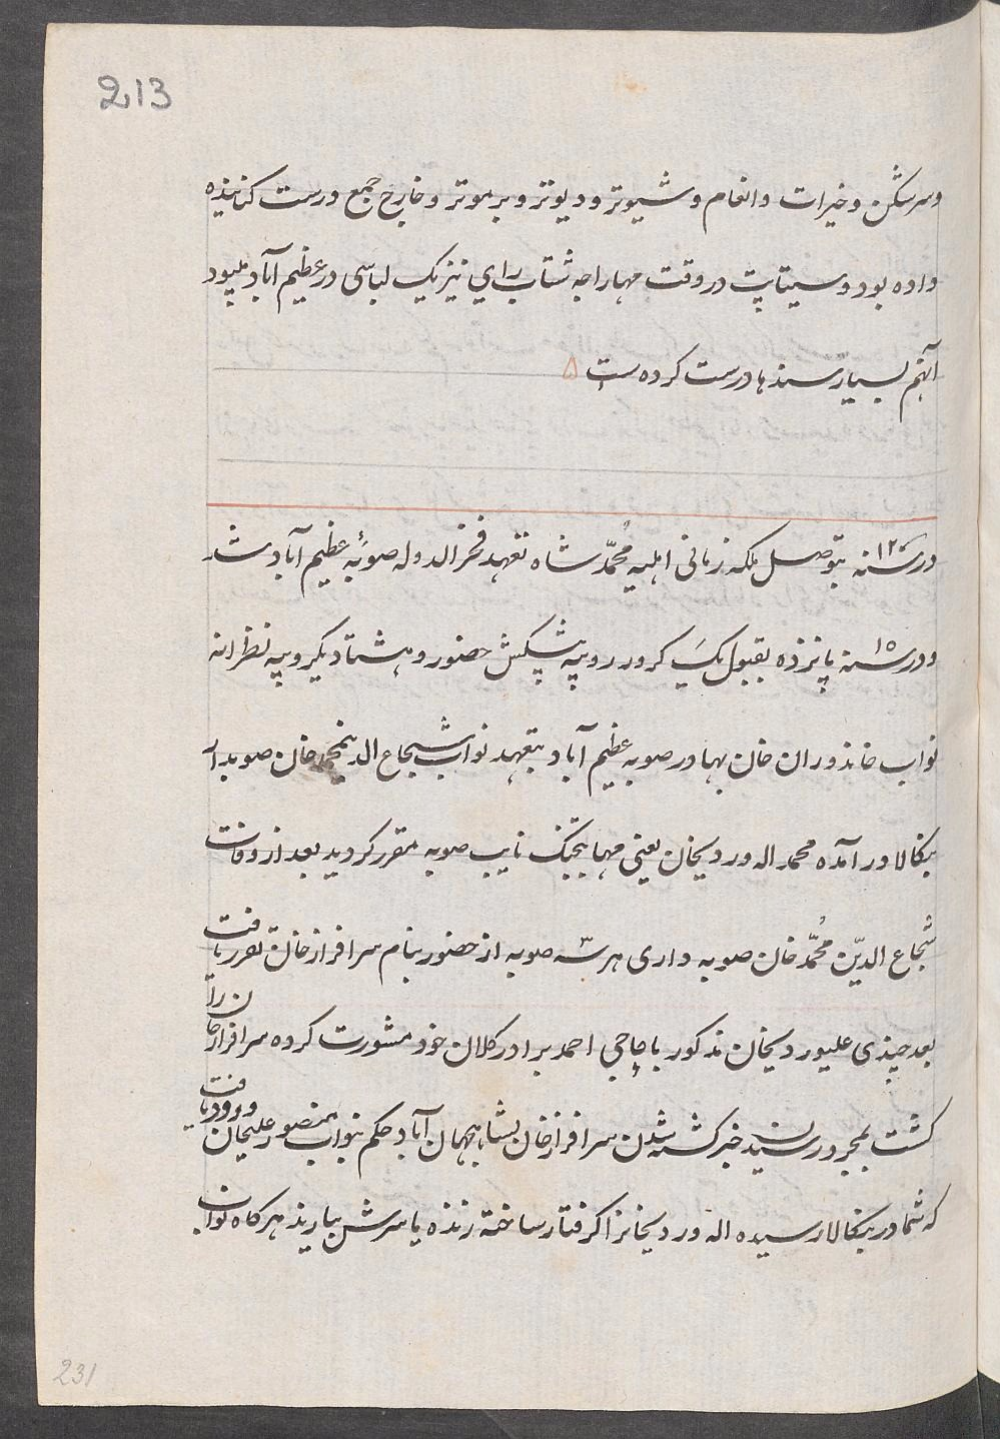 213
وسرشکن وخیرات وانعام وشیوتر ودیوتر وبرموتر وخارج جمع درست کنانیده
داده بود وسیتاپت دروقت مهاراجه شتاب رای نیز یک لباسی در عظیم آباد میبود
آنهم بسیار سندها درست کرده ست ۵
در سنه ۱۲ بتوصل ملکه زمانی اهلیه محمّد شاه تعهد فخر الدوله صوبهٔ عظیم آباد شد
ودر سنه ۱۵ پانزده بقبول یک کرور روپیه پیشکش حضور وهشتاد یکروپیه نظرانه
نواب خاندوران خان بهادر صوبه عظیم آباد بتعهد نواب شجاع الدینمحمد خان صوبدار
بنکالا در آمده محمد اله وردیخان یعنی مهابتجنک نایب صوبه مقرر کردید بعد از وفات
شجاع الدیّن مُحمّد خان صوبه داری هر سه ۳ صوبه از حضور بنام سرافراز خان تقرر یافت
بعد چندی علیوردیخان مذکور با حاجی احمد برادر کلان خود مشورت کرده سرافراز خان را
کشت بمجرد رسیدن خبر کشته شدن سرافراز خان بشاهجهان آباد حکم بنواب منصور علیخان ورود یافت
که شما در بنکالا رسیده اله وردیخانرا کرفتار ساخته زنده یا سرش بیارید هرکاه نواب
231